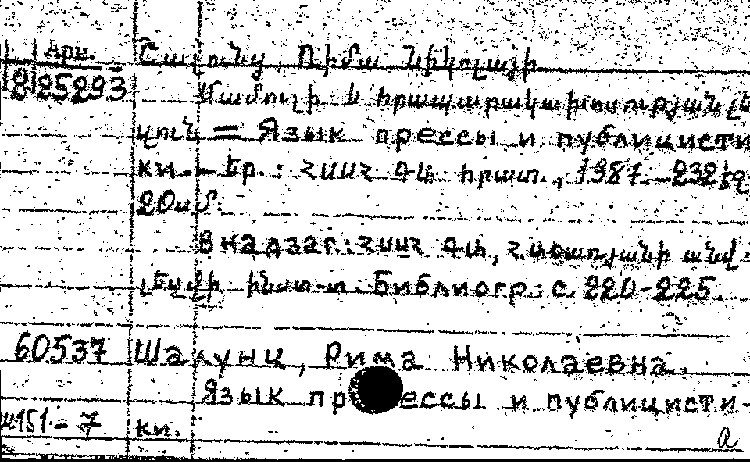 Арм. Շալունց, Ռիմա Նիկոլայի
825293 Մամուլի և հրապարակախոսության լե-
զուն = Язык прессы и публицисти
ки. - Եր. : ՀՍՍՀ ԳԱ հրատ., 1987. - 232 էջ
20 սմ.
В надзаг.: ՀՍՍՀ ԳԱ, Հ. Աճառյանի անվ.
լեզվի ինստ-տ. Библиогр.: с. 220-225.
60537 Шалунц, Рима Николаевна.
Язык прессы и публицисти-
151 - 7 ки. а